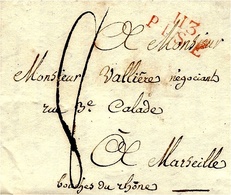 A Monsieur
Monsieur Vallière négociant
rue 3e Calade
A Marseille
bouches du rhône